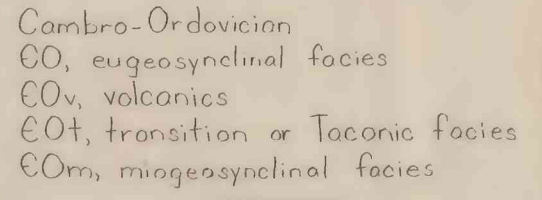 Cambro-Ordovician
ЄO, eugeosynclinal facies
ЄOv, volcanics
ЄOt, transition or Taconic facies
ЄOm, miogeosynclinal facies